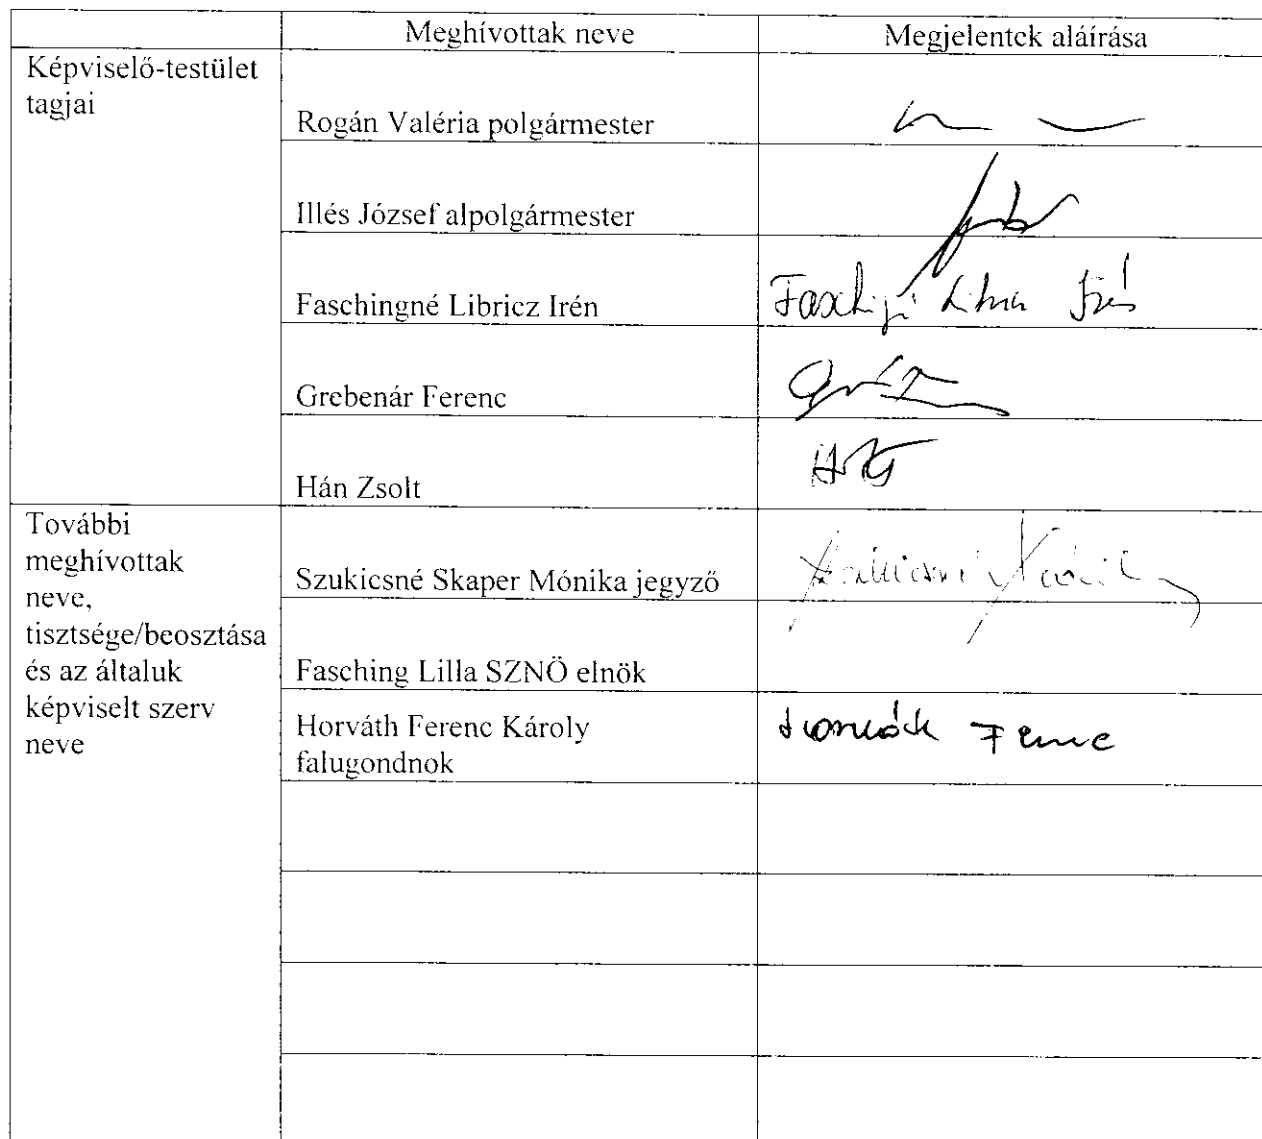 Meghívottak neve
Megjelentek aláírása
Képviselő-testület
tagjai
Rogán Valéria polgármester
Illés József alpolgármester
Faschingné Libricz Irén
Grebenár Ferenc
Hán Zsolt
További
meghívottak
neve,
tisztsége/beosztása
és az általuk
képviselt szerv
neve
Szukicsné Skaper Mónika jegyző
Fasching Lilla SZNÖ elnök
Horváth Ferenc Károly
falugondnok
Horváth Ferenc